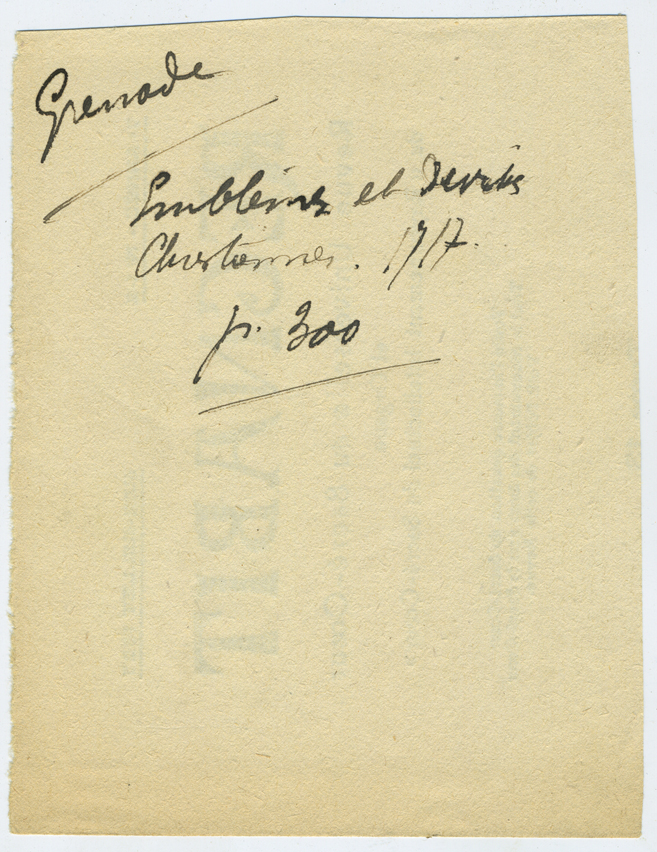 Grenade
Emblèmes et Devises
Chretiennes. 1717.
p. 300